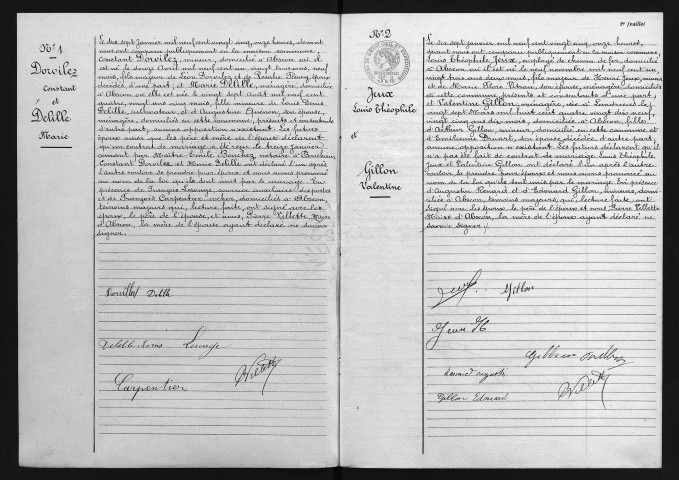 N° 1
Dorvilez
Constant
et
Délille
Marie
Le dix sept Janvier mil neuf cent vingt cinq, onze heures, devant
nous ont comparu publiquement en la maison commune,
Constant Dorvilez, mineur, domicilié à Abscon où il
est né le douze Avril mil neuf cent un, vingt trois ans, neuf
mois, fils majeur de Léon Dorvilez et de Fleury, époux
décédés, d'une part; et Marie Délille, ménagère, domiciliée
à Abscon, où elle est née le vingt sept août mil neuf cent
quatre, vingt ans cinq mois, fille mineure de Louis Denis
Délille, cultivateur, et d'Augustine Quénon, son épouse,
ménagère, domiciliés en cette commune, présents et consentants
d'autre part; aucune opposition n'existant. Les futurs
époux ainsi que les père et mère de l'épouse déclarent
qu'un contrat de mariage a été reçu le treize Janvier
courant par Maître Emile Bouchez, notaire à Bouchain.
Constant Dorvilez et Marie Délille ont déclaré l'un après
l'autre vouloir se prendre pour époux et nous avons prononcé
au nom de la loi qu'ils sont unis par le mariage. En
présence de François Lesauge, courrier auxiliaire des postes
et de François Carpentier, cocher, domiciliés à Abscon,
témoins majeurs qui, lecture faite, ont signé avec les
époux, le père de l'épouse, et nous, Pierre Villette, Maire
d'Abscon, la mère de l'épouse ayant déclaré ne savoir
signer.
Délille
Délille
Carpentier
Villette
2e feuillet
N° 2
Jeux
Louis Théophile
et
Gillon
Valentine
Le dix sept janvier mil neuf cent vingt cinq, onze heures,
devant nous ont comparu publiquement en la maison commune,
Louis Théophile Jeux, employé de chemin de fer, domicilié
à Abscon, où il est né le novembre mil neuf cent un
vingt trois ans deux mois, fils majeur de Henri Jeux, mineur
et de Marie Flore son épouse, ménagère, domiciliés
en cette commune, présents et consentants d'une part,
et Valentine Gillon, ménagère, née à le
vingt sept Mars mil huit cent quatre vingt dix neuf,
vingt cinq ans dix mois, domiciliée à Abscon, fille
d'Arthur Gillon, mineur, domicilié en cette commune et
d'Emilienne Druart, son épouse, décédée, d'autre part,
aucune opposition n'existant. Les futurs déclarent qu'il
n'a pas été fait de contrat de mariage. Louis Théophile
Jeux et Valentine Gillon ont déclaré l'un après l'autre
vouloir se prendre pour époux et nous avons prononcé au
nom de la loi qu'ils sont unis par le mariage. En présence
d'Augustin Renard et d'Edouard Gillon, domiciliés
à Abscon, témoins majeurs, qui, lecture faite, ont
signé avec les époux, le père de l'époux et nous Pierre Villette
Maire d'Abscon, la mère de l'époux ayant déclaré ne
savoir signer.
Jeux Gillon
Jeux H
Gillon
Gillon Edouard
Villette